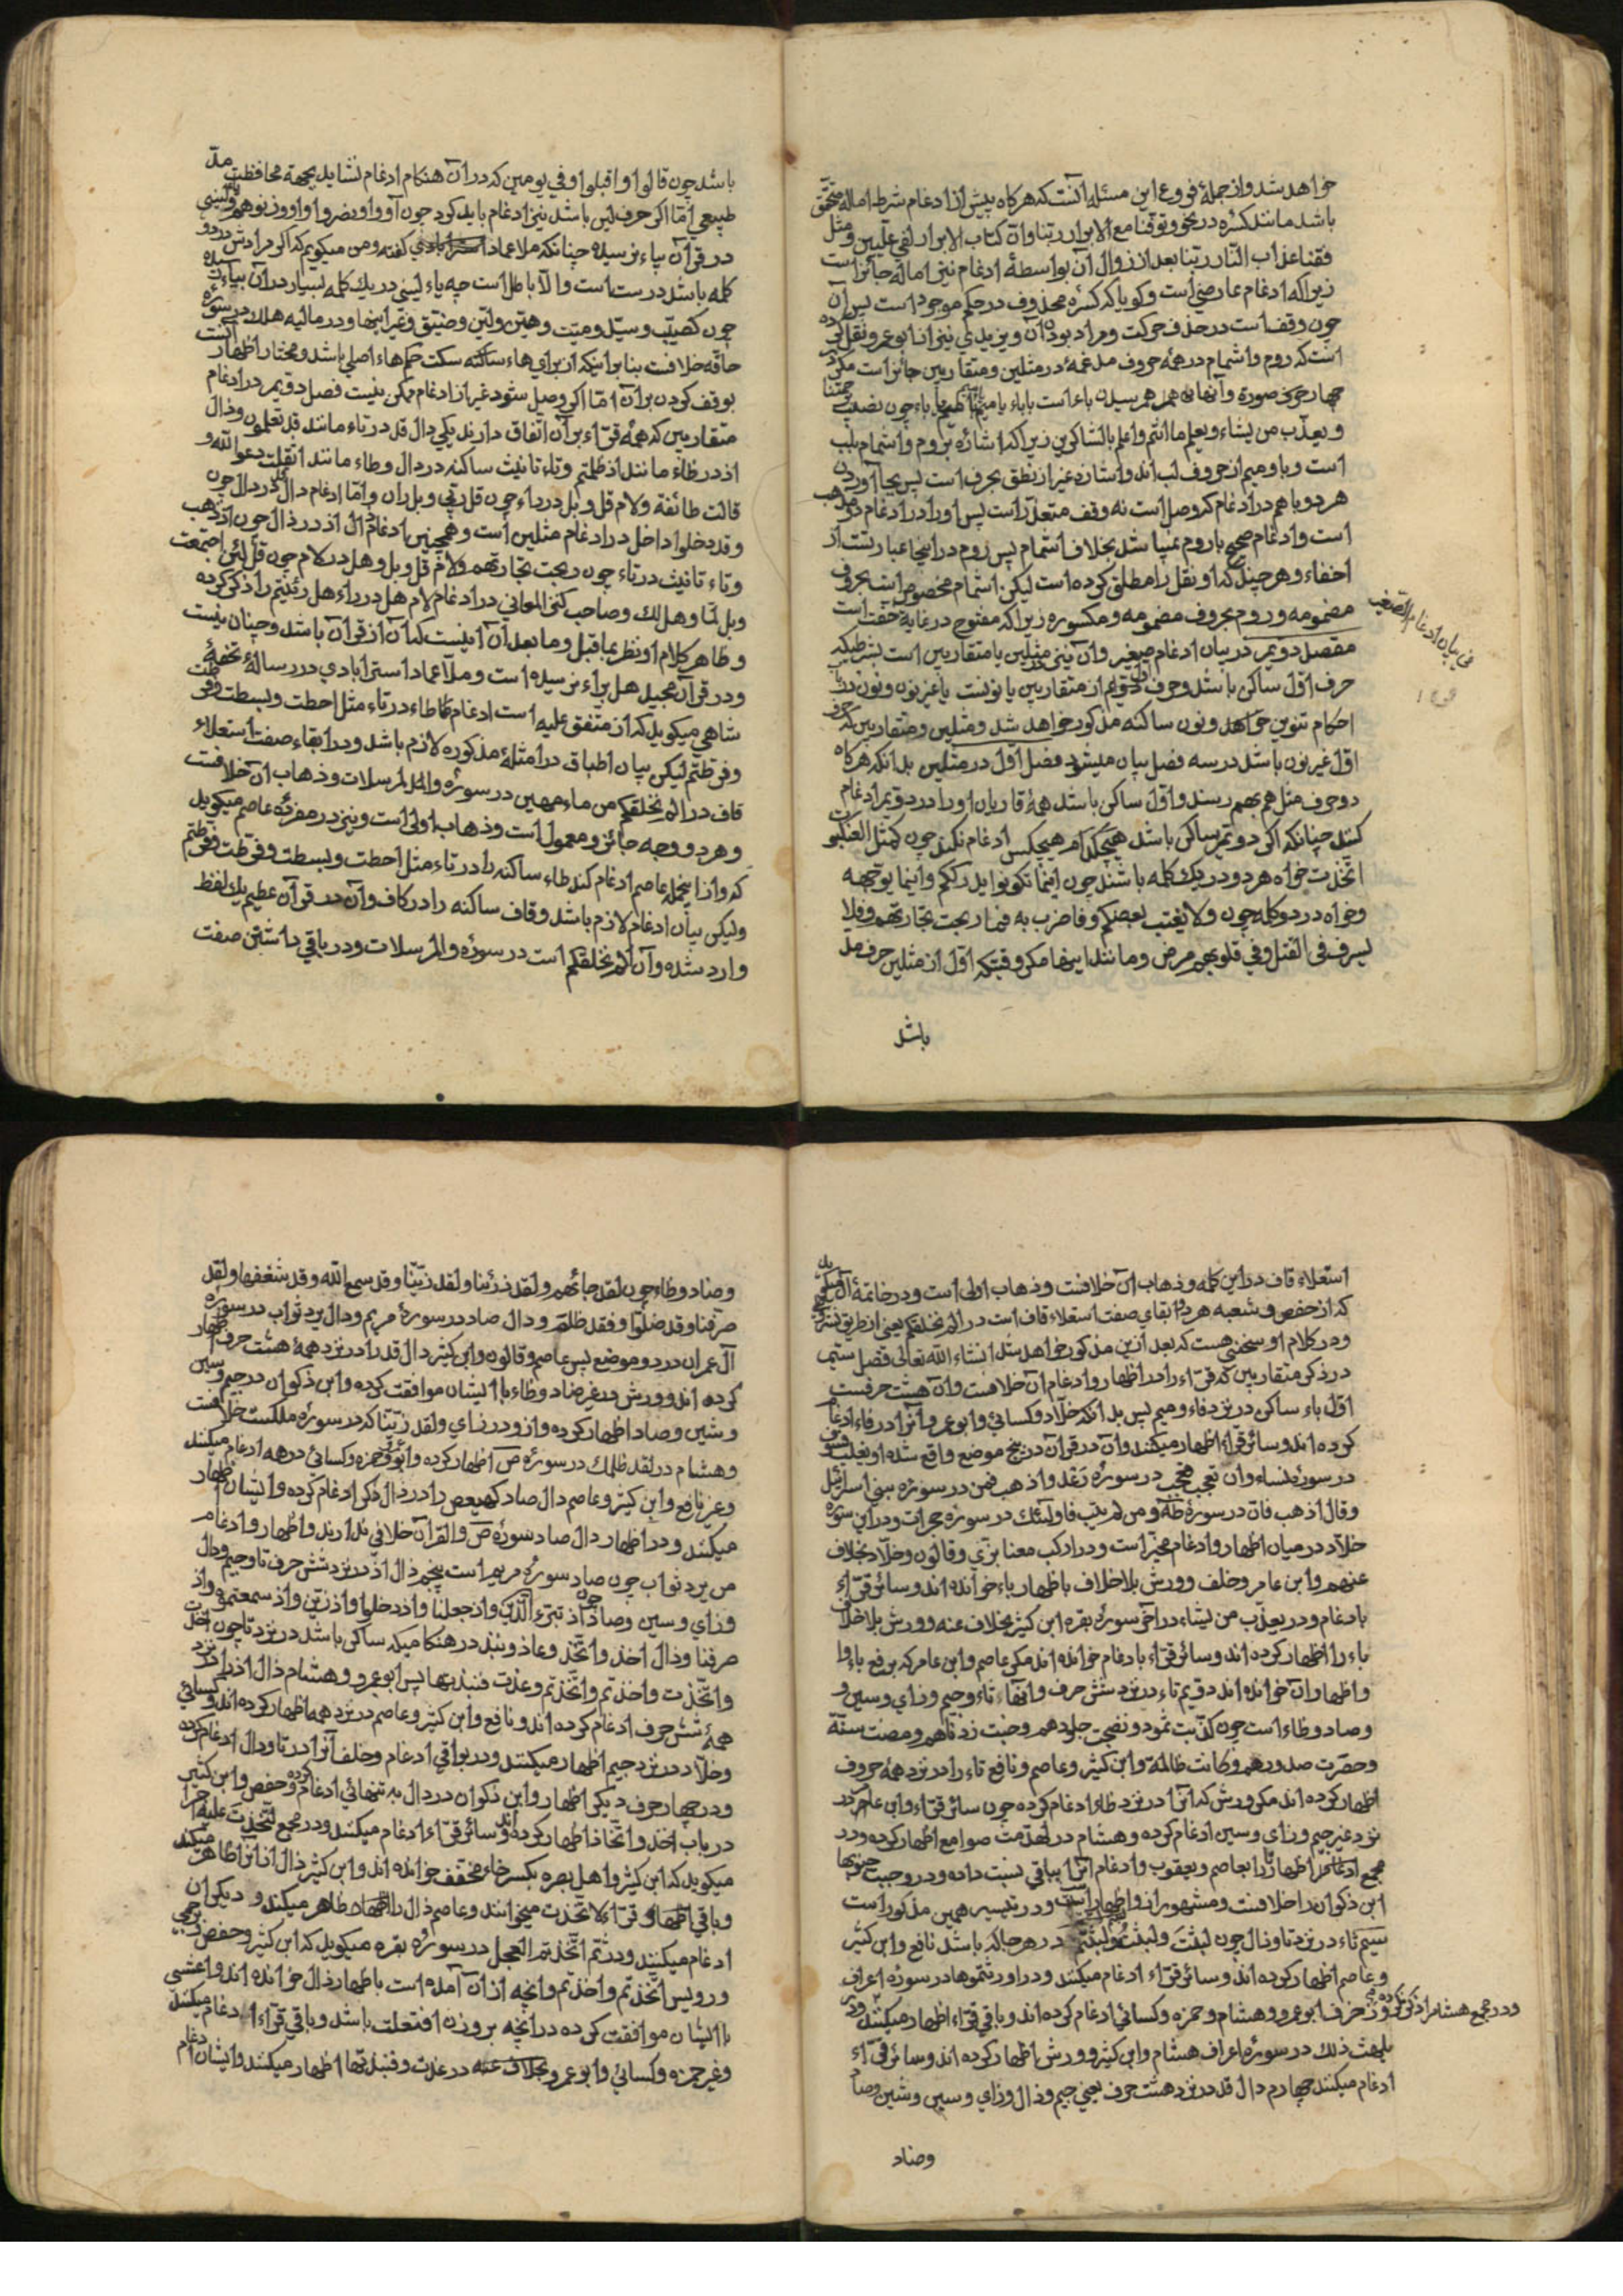 خواهد شد و از جملهٔ فروع این مسئله آنست که هرگاه پیش از ادغام شرط اماله متحقق
باشد مانند کسره در نحو و توفنا مع الابرار ربنا وان کتاب الابرار لفی علیین و مثل
فقنا عذاب النار ربنا بعد از زوال آن بواسطهٔ ادغام نیز اماله جائز است
زیرا که ادغام عارضی است و گویا که کسره محذوف در حکم موجود است پس آن
چون وقف است در حذف حرکت و مراد بوده آن و یزیدی نیز از ابو عمرو نقل کرده
است که روم و اشمام در همهٔ حروف مدغمه در مثلین و متقاربین جائز است مگر در
چهار صورة و آنها بهم رسیدن باء است با باء یا میم باء چون نصیب برحمتنا
و یعذب من یشاء و یعلم ما انتم و اعلم بالشاکرین زیرا که اشاره بروم و اشمام بلب
است و با و میم از حروف لب اند و اشاره غیر از نطق بحرف است پس بجا آوردن
هر دو با هم در ادغام که وصل است نه وقف متعذر است پس او را در ادغام دو مذهب
است و ادغام صحیح با روم نمیباشد بخلاف اشمام پس روم در اینجا عبارتست از
اخفاء و هر چند که او نقل را مطلق کرده است لیکن اشمام مخصوص است بحروف
مضمومه و روم بحروف مضمومه و مکسوره زیرا که مفتوح در غایة خفت است
مقصل دویم در بیان ادغام صغیر و آن نیز در مثلین یا متقاربین است بشرطیکه
فی بیان ادغام الصغیر
حرف اول ساکن باشد و حرف اول دویم از متقاربین یا نونست یا غیر نون و نون در باب
احکام تنوین و نون ساکنه مذکور خواهد شد و مثلین و متقاربین که حرف
اول غیر نون باشد در سه فصل بیان میشود فصل اول در مثلین بدانکه هرگاه
دو حرف مثل هم بهم رسند و اول ساکن باشد همهٔ قاریان او را در دویم ادغام
کنند چنانکه اگر دویم ساکن باشد هیچکدام هیچکس ادغام نکند چون کمثل العنکبوت
اتخذت خواه هر دو در یک کلمه باشند چون اینما تکونوا یدرککم و اینما یوجهه
و خواه در دو کلمه چون ولا یغتب بعضکم و فاضرب به فما ربحت تجارتهم و فلا
یسرف فی القتل و فی قلوبهم مرض و مانند اینها مگر وقتیکه اول از مثلین حرف مد
باشد
باشد چون قالوا و اقبلوا و فی یومین که در آن هنگام ادغام نشاید بجهة محافظت مد
طبیعی اما اگر حرف لین باشد نیز ادغام باید کرد چون آووا و نصروا
در قرآن بیاء نرسیده چنانکه ملا عماد گفته و من میگویم که اگر مرادش در دو
کلمه باشد درست است و الا باطل است چه یاء لینی در یک کلمه بسیار در آن بیاء رسیده
چون کصیب و سید و میت و هین و لین و ضیق و غیر اینها و در مالیه هلک در سورهٔ
حاقه خلافست بنا بر اینکه از برای هاء ساکنه سکت حکم هاء اصلی باشد و مختار اظهار آنست
بوقف کردن بر آن اما اگر وصل شود غیر از ادغام ممکن نیست فصل دویم در ادغام
متقاربین که همهٔ قراء بر آن اتفاق دارند یکی دال قد در تاء مانند قد تعلمون و ذال
اذ در ظاء مانند اذ ظلمتم و تاء تانیث ساکنه در دال و طاء مانند اثقلت دعوا الله و
قالت طائفة و لام قل و بل در راء چون قل ربی و بل ران و اما ادغام دال در دال چون
وقد دخلوا داخل در ادغام مثلین است و همچنین ادغام ذال اذ در ذال چون اذ ذهب
و تاء تانیث در تاء چون ربحت تجارتهم و لام قل و بل و هل در لام چون قل لئن اجتمعت
و بل لما و هل لک و صاحب کنز المعانی در ادغام لام هل در راء هل رئیتم را ذکر کرده
و ظاهر کلام او نظر بما قبل و ما بعد آن اینست که آن از قرآن باشد و چنان نیست
و در قرآن مجید هل براء نرسیده است و ملا عماد استرابادی در رسالهٔ تحفهٔ
شاهی میگوید که از متفق علیه است ادغام طاء در تاء مثل احطت و بسطت و فرطت
و فرطتم لیکن بیان اطباق در امثلهٔ مذکوره لازم باشد و در ابقاء صفت استعلاء
قاف در الم نخلقکم من ماء مهین در سورهٔ والمرسلات و ذهاب آن خلافست
و هر دو وجه جائز و معمول است و ذهاب اولی است و نیز در مفردهٔ عاصم میگوید
که و از اینجمله عاصم ادغام کند طاء ساکنه را در تاء مثل احطت و بسطت و فرطت و فرطتم
و لیکن بیان ادغام لازم باشد و قاف ساکنه را در کاف و آن در قرآن عظیم یک لفظ
وارد شده و آن الم نخلقکم است در سورهٔ والمرسلات و در باقی داشتن صفت
استعلاء قاف در این کلمه و ذهاب آن خلافست و ذهاب اولی است و در خاتمهٔ آن میگوید
که از حفص و شعبه هر دو ابقای صفت استعلاء قاف است در الم نخلقکم یعنی از طریق نشر
و در کلام او سخنی هست که بعد ازین مذکور خواهد شد انشاء الله تعالی فصل سیم
در ذکر متقاربین که قراء را در اظهار و ادغام آن خلافست و آن هشت حرفست
اول باء ساکن در نزد فاء و میم پس بدانکه خلاد و کسائی و ابو عمرو آنرا در فاء ادغام
کرده اند و سائر قراء اظهار میکنند و آن در قرآن در پنج موضع واقع شده او یغلب فسوف
در سورهٔ نساء و ان تعجب فعجب در سورهٔ رعد و اذهب فمن در سورهٔ بنی اسرائیل
و قال اذهب فان در سورهٔ طه و من لم یتب فاولئک در سوره حجرات و در این سوره
خلاد در میان اظهار و ادغام مخیر است و در ارکب معنا بزی و قالون و خلاد بخلاف
عنهم و ابن عامر و خلف و ورش بلا خلاف باظهار باء خوانده اند و سائر قراء
بادغام و در یعذب من یشاء در آخر سورهٔ بقره ابن کثیر بخلاف عنه و ورش بلا خلاف
باء را اظهار کرده اند و سائر قراء بادغام خوانده اند مگر عاصم و ابن عامر که برفع باء و
اظهار آن خوانده اند دویم تاء در نزد شش حرف و آنها ثاء و جیم و زای و سین و
و صاد و ظاء است چون کذبت ثمود و نضجت جلودهم و خبت زدناهم و مضت سنة
و حصرت صدورهم و کانت ظالمة و ابن کثیر و عاصم و نافع تاء را در نزد همهٔ حروف
اظهار کرده اند مگر ورش که آنرا در نزد ظاء ادغام کرده چون سائر قراء و ابن عامر در
نزد غیر جیم و زای و سین ادغام کرده و هشام در لهدمت صوامع اظهار کرده و در
مجمع اظهار را بعاصم و یعقوب و ادغام آنرا بباقی نسبت داده و در وجبت جنوبها
ابن ذکوان را خلافست و مشهور از او اظهار است و در تیسیر همین مذکور است
سیم ثاء در نزد تا و ذال چون لبثت و لبثت و لبثتم در هر جا که باشد نافع و ابن کثیر
و عاصم اظهار کرده اند و سائر قراء ادغام میکنند و در اورثتموها در سورهٔ اعراف
ابو عمرو و هشام و حمزه و کسائی ادغام کرده اند و باقی قراء اظهار میکنند و در
یلهث ذلک در سورهٔ اعراف هشام و ابن کثیر و ورش اظهار کرده اند و سائر قراء
ادغام میکنند چهارم دال قد در نزد هشت حرف یعنی جیم و ذال و زای و سین و شین و صاد
وضاد
وضاد و ظاء چون لقد جائهم و لقد ذرئنا و لقد زینا و قد سمع الله و قد شغفها و لقد
صرفنا و قد ضلوا و فقد ظلم و دال صاد در سورهٔ مریم و دال یرد ثواب در سورهٔ
آل عمران در دو موضع پس عاصم و قالون و ابن کثیر دال قد را در نزد همهٔ هشت حرف اظهار
کرده اند و ورش در غیر ضاد و ظاء با ایشان موافقت کرده و ابن ذکوان در جیم و سین
و شین و صاد اظهار کرده و از او در زای و لقد زینا که در سورهٔ ملکست خلافست
و هشام در لقد ظلمک در سورهٔ ص اظهار کرده و ابو عمرو و حمزه و کسائی در همه ادغام میکنند
و غیر نافع و ابن کثیر و عاصم دال صاد کهیعص را در ذال ذکر ادغام کرده و ایشان اظهار
میکنند و در اظهار دال صاد سورهٔ ص و القرآن خلافی ندارند و اظهار و ادغام
من یرد ثواب چون صاد سورهٔ مریم است پنجم ذال اذ در نزد شش حرف تا و جیم و دال
و زای و سین و صاد چون اذ تبرء الذین و اذ جعلنا و اذ دخلوا و اذ زین و اذ سمعتموه و اذ
صرفنا و ذال اخذ و اتخذ و عاذ و نبذ در هنگامیکه ساکن باشد در نزد تا چون اخذت
و اتخذت و اخذتم و اتخذتم و عذت فنبذتها پس ابو عمرو و هشام ذال اذ را در نزد
همهٔ شش حرف ادغام کرده اند و نافع و ابن کثیر و عاصم در نزد همه اظهار کرده اند و کسائی
و خلاد در نزد جیم اظهار میکنند و در بواقی ادغام و خلف آنرا در تا و دال ادغام کرده
و در چهار حرف دیگر اظهار و ابن ذکوان در دال به تنهائی ادغام کرده و حفص و ابن کثیر
در باب اخذ و اتخاذ اظهار کرده اند و سائر قراء ادغام میکنند و در مجمع لتخذت علیه اجرا
میگوید که ابن کثیر و اهل بصره بکسر خاء مخفف خوانده اند و ابن کثیر ذال از آن اظاهر میکند
و باقی قراء لاتخذت میخوانند و عاصم ذال را ظاهر میکند و دیگران
ادغام میکنند و در ثم اتخذتم العجل در سورهٔ بقره میگوید که ابن کثیر و حفص
و رویس اتخذتم و اخذتم و آنچه از آن آمده است باظهار ذال خوانده اند و اعشی
با ایشان موافقت کرده در آنچه بر وزن افتعلت باشد و باقی قراء ادغام میکنند
و غیر حمزه و کسائی و ابو عمرو بخلاف عنه در عذت و فنبذتها اظهار میکنند و ایشان ادغام